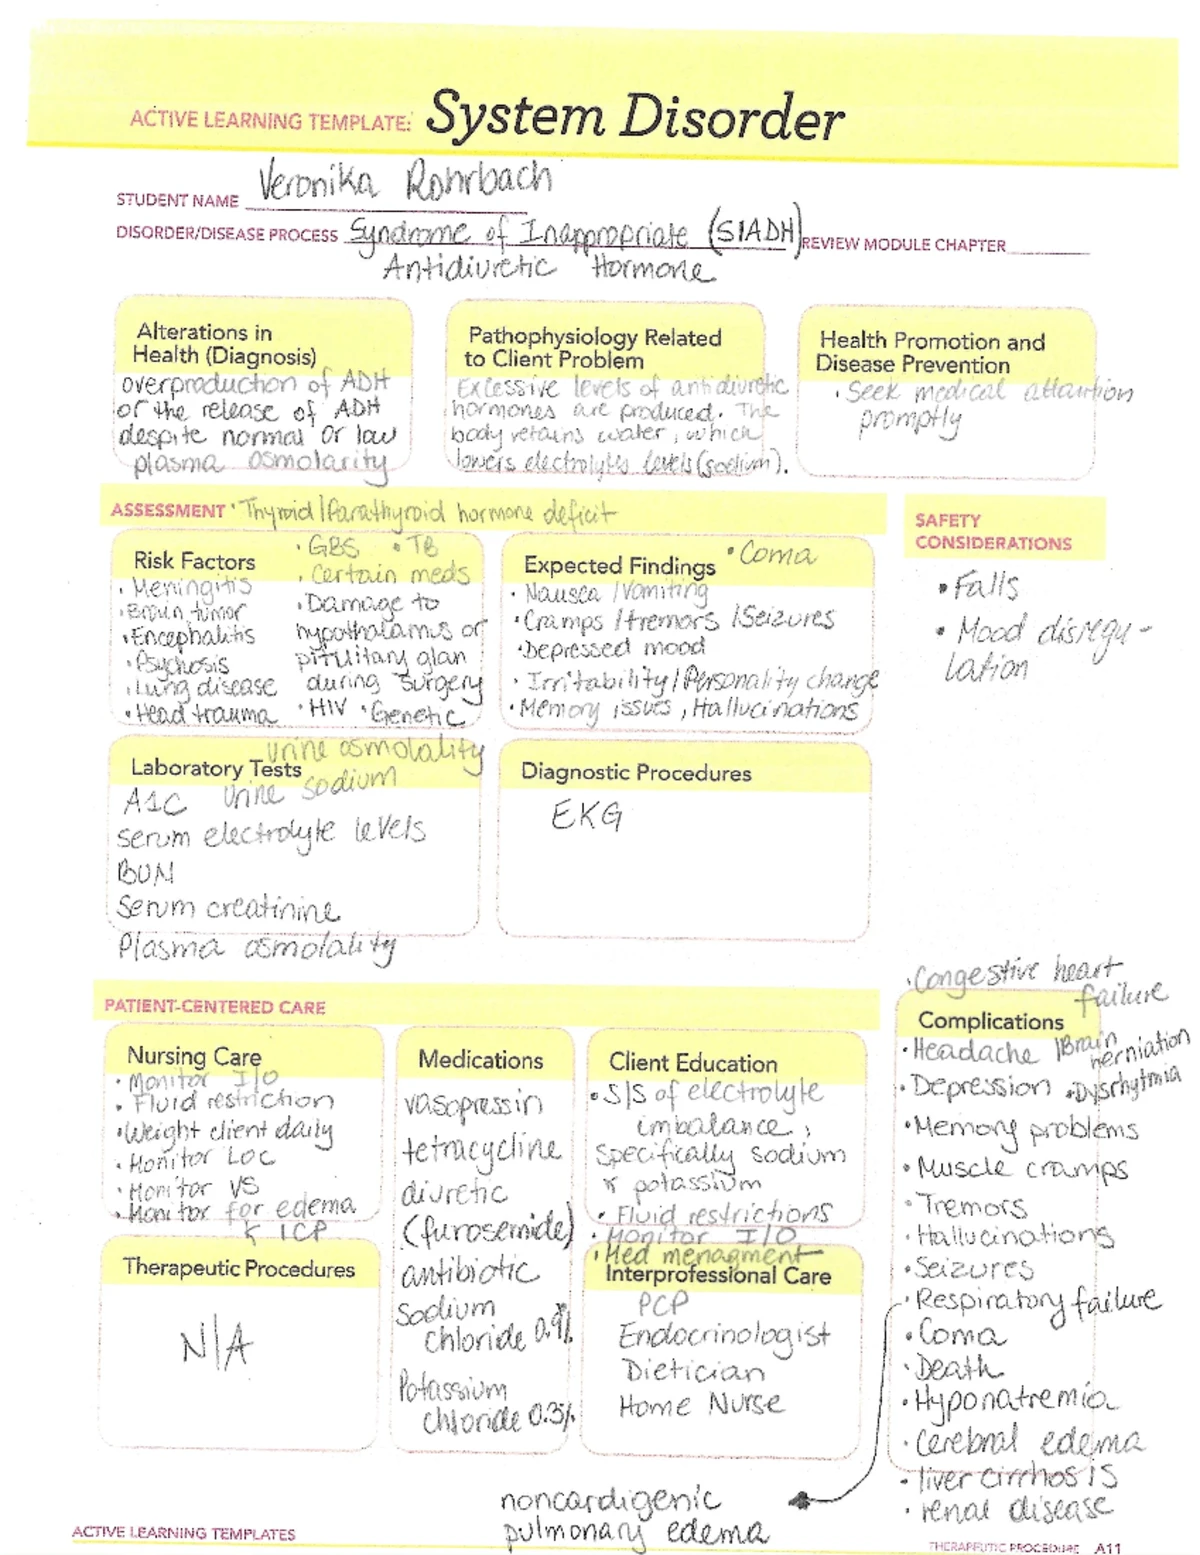 ACTIVE LEARNING TEMPLATE: System Disorder
STUDENT NAME Veronika Rohrbach
DISORDER/DISEASE PROCESS Syndrome of Inappropriate (SIADH) REVIEW MODULE CHAPTER
Antidiuretic Hormone
Alterations in
Health (Diagnosis)
overproduction of ADH
or the release of ADH
despite normal or low
plasma osmolarity
Pathophysiology Related
to Client Problem
Excessive levels of antidiuretic
hormones are produced. The
body retains water, which
lowers electrolytes levels (sodium).
Health Promotion and
Disease Prevention
· Seek medical attantion
promptly
ASSESSMENT · Thyroid/Parathyroid hormone deficit
Risk Factors
· Meningitis
· Brain tumor
· Encephalitis
· Psychosis
· Lung disease
· Head trauma
· GBS · TB
· Certain meds
· Damage to
hypothalamus or
pituitary glan
during surgery
· HIV · Genetic
Expected Findings · Coma
· Nausea / Vomiting
· Cramps / tremors / Seizures
· Depressed mood
· Irritability / Personality change
· Memory issues, Hallucinations
SAFETY
CONSIDERATIONS
• Falls
• Mood disregu-
lation
urine osmolality
Laboratory Tests
urine sodium
A1C
serum electrolyte levels
BUN
Serum creatinine
Plasma osmolality
Diagnostic Procedures
EKG
PATIENT-CENTERED CARE
Nursing Care
· Monitor I/O
· Fluid restriction
· Weight client daily
· Monitor LOC
· Monitor VS
· Monitor for edema
& ICP
Therapeutic Procedures
N/A
Medications
vasopressin
tetracycline
diuretic
(furosemide)
antibiotic
Sodium
chloride 0.9%
Potassium
chloride 0.3%
Client Education
• S/S of electrolyte
imbalance,
specifically sodium
& potassium
• Fluid restrictions
· Monitor I/O
· Med menagment
Interprofessional Care
PCP
Endocrinologist
Dietician
Home Nurse
· Congestive heart
failure
Complications
· Headache / Brain
herniation
· Depression · Dysrhytmia
· Memory problems
· Muscle cramps
· Tremors
· Hallucinations
· Seizures
· Respiratory failure
· Coma
· Death
· Hyponatremia
· Cerebral edema
· liver cirrhosis
· renal disease
noncardigenic
pulmonary edema
ACTIVE LEARNING TEMPLATES
THERAPEUTIC PROCEDURE A11